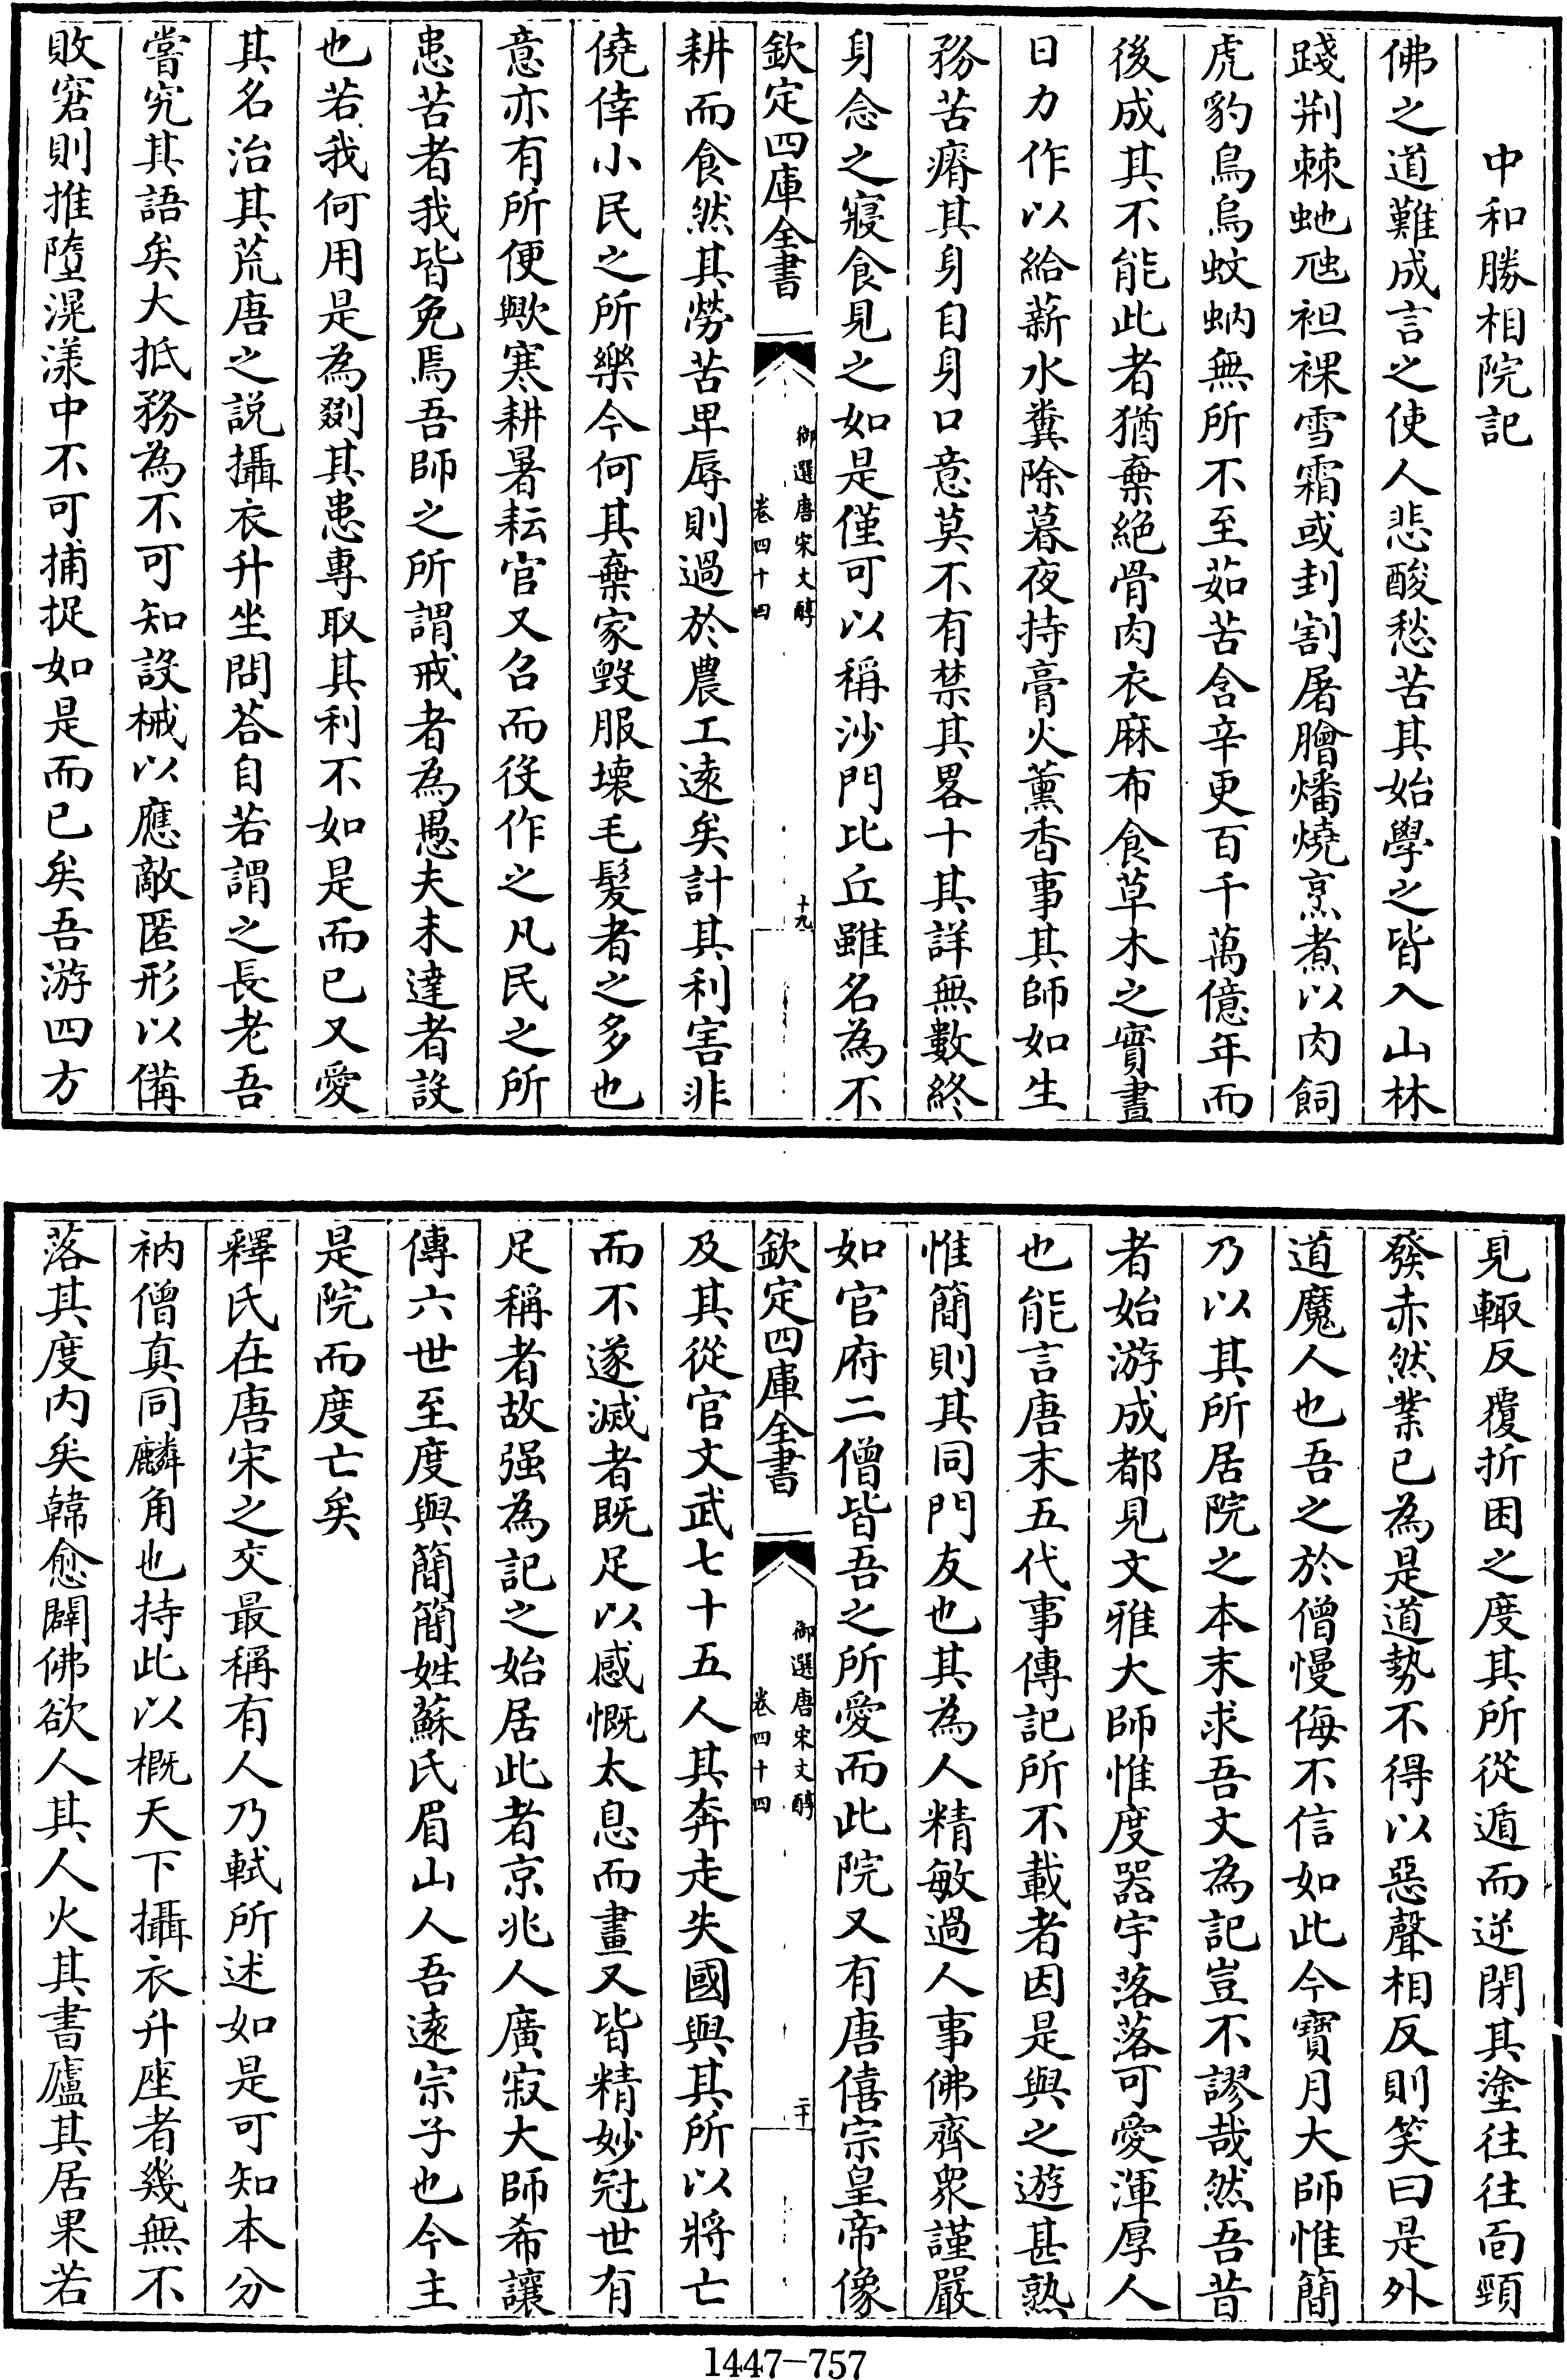 中和勝相院記
佛之道難成言之使人悲酸愁苦其始學之皆入山林
踐荆棘虵虺袒裸雪霜或刲割屠膾燔燒烹煮以肉飼
虎豹鳥烏蚊蚋無所不至茹苦含辛更百千萬億年而
後成其不能此者猶棄絶骨肉衣麻布食草木之實晝
日力作以給薪水糞除暮夜持膏火薰香事其師如生
務苦瘠其身自身口意莫不有禁其畧十其詳無數終
身念之寢食見之如是僅可以稱沙門比丘雖名為不
欽定四庫全書
御選唐宋文醇
卷四十四
十九
耕而食然其勞苦卑辱則過於農工逺矣計其利害非
僥倖小民之所樂今何其棄家毀服壞毛髮者之多也
意亦有所便歟寒耕暑耘官又召而役作之凡民之所
患苦者我皆免焉吾師之所謂戒者為愚夫未達者設
也若我何用是為剟其患專取其利不如是而已又愛
其名治其荒唐之説攝衣升坐問荅自若謂之長老吾
嘗究其語矣大抵務為不可知設械以應敵匿形以備
敗窘則推墮滉漾中不可捕捉如是而已矣吾游四方
見輒反覆折困之度其所從遁而逆閉其塗往往面頸
發赤然業已為是道勢不得以惡聲相反則笑曰是外
道魔人也吾之於僧慢侮不信如此今寶月大師惟簡
乃以其所居院之本末求吾文為記豈不謬哉然吾昔
者始游成都見文雅大師惟度器宇落落可愛渾厚人
也能言唐末五代事傳記所不載者因是與之遊甚熟
惟簡則其同門友也其為人精敏過人事佛齊衆謹嚴
如官府二僧皆吾之所愛而此院又有唐僖宗皇帝像
欽定四庫全書
御選唐宋文醇
卷四十四
二十
及其從官文武七十五人其奔走失國與其所以將亡
而不遂滅者既足以感慨太息而畫又皆精妙冠世有
足稱者故强為記之始居此者京兆人廣寂大師希讓
傳六世至度與簡簡姓蘇氏眉山人吾逺宗子也今主
是院而度亡矣
釋氏在唐宋之交最稱有人乃軾所述如是可知本分
衲僧真同麟角也持此以概天下攝衣升座者幾無不
落其度内矣韓愈闢佛欲人其人火其書廬其居果若
1447-757